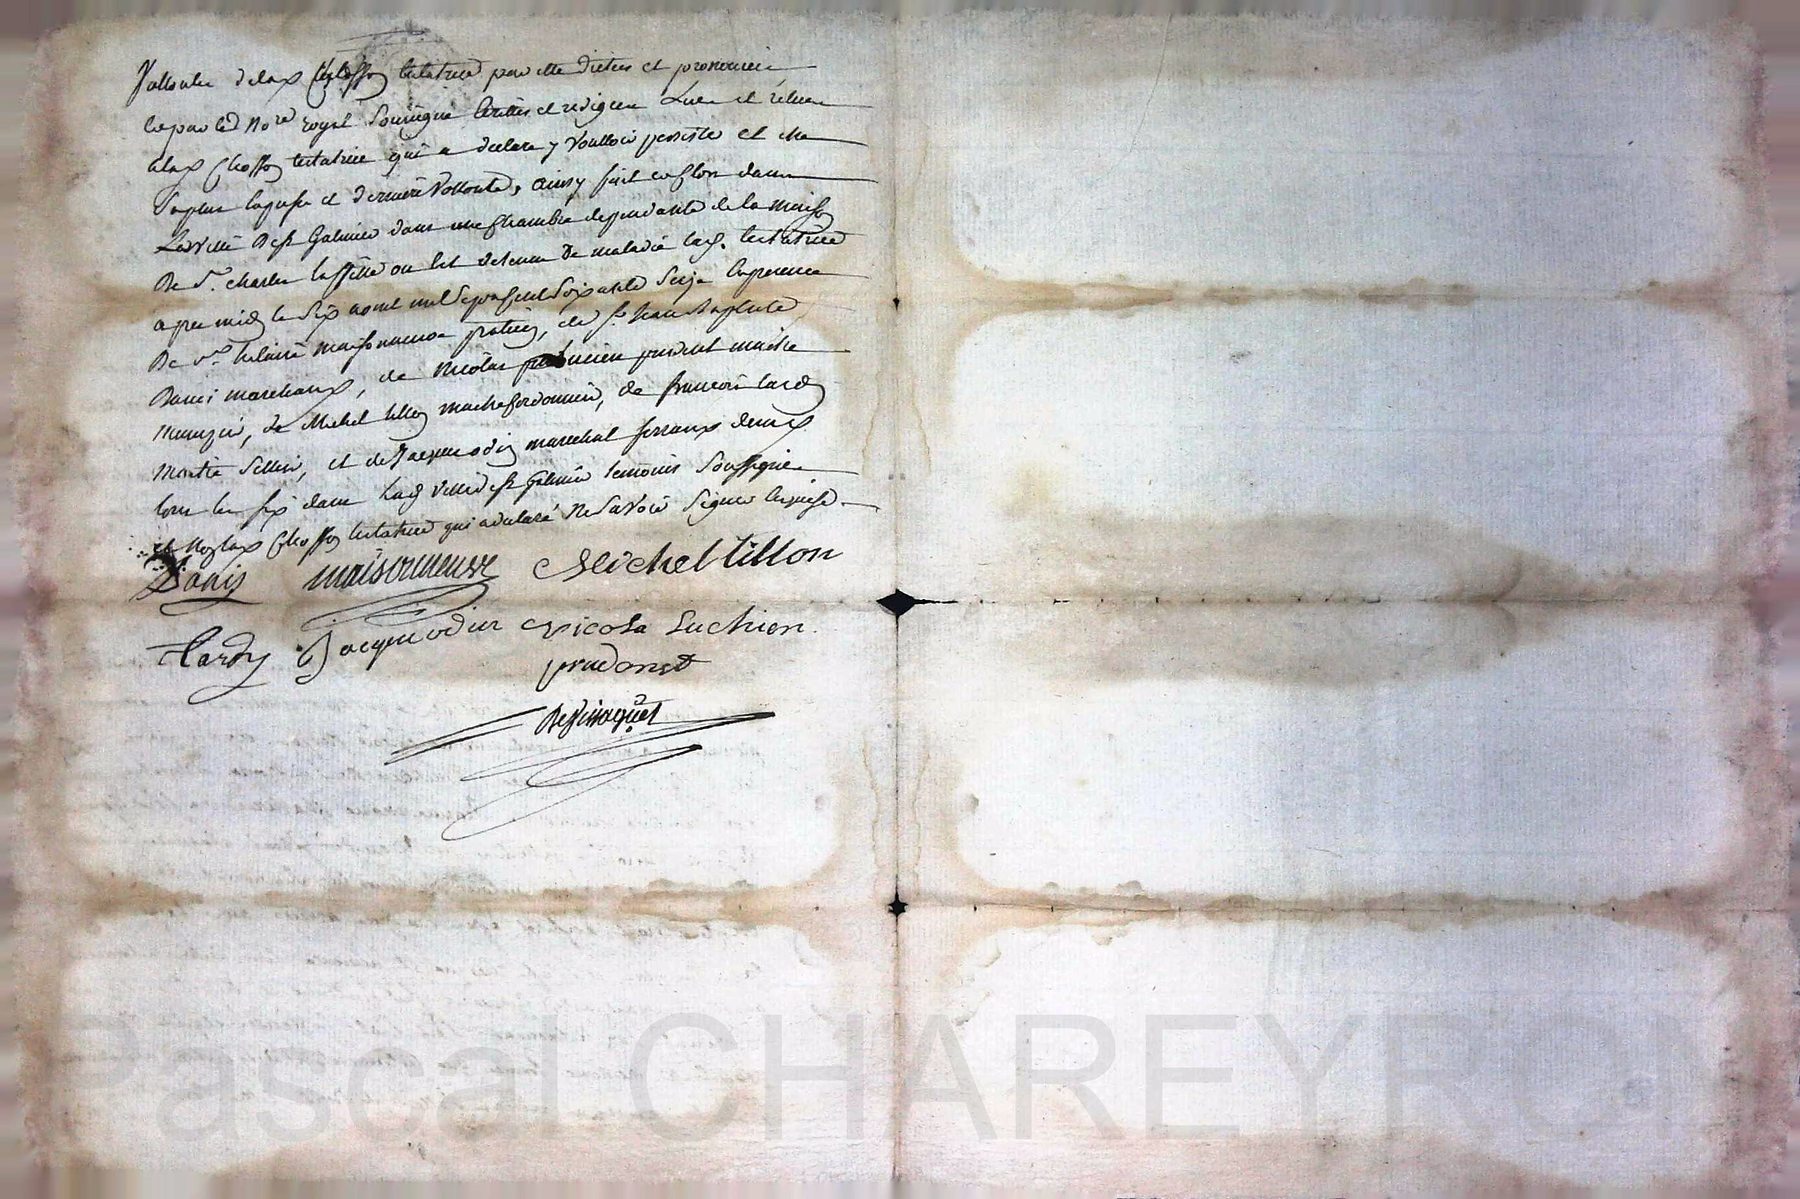 Vollonté de lad Chosson testatrice par elle dictée et prononcée
et par led No.re royal soussigné écrittes et redigées Lues et relues
alad Chosson testatrice qui a déclaré y Voulloir persister et etre
Sa plus expresse et derniere Vollonté, ainsy fait et clos dans
Lad Ville de St Galmier dans une Chambre dependante de la maison
De Sr. charles ou est detenue De maladie lad. testatrice
apres midy le Six aout mil Sept cent Soixante Seize En presence
De Sr. maisonneuve praticien, de Sr. Jean Baptiste
Danis marchand, de Nicolas Lucien prudent maitre
menuzier, de Michel tillon maitre Cordonnier, de francois tardy
maitre Sellier, et de Jacque odin marechal ferrant demeurt
tous les six dans lad ville de St Galmier temoins Soussignes
et Non lad Chosson testatrice qui a déclaré Ne Savoir Signer Enquise
Danis maisonneuve Michel tillon
tardy Jacque odin Nicola Luchien
prudenst
Pascal CHAREYRON